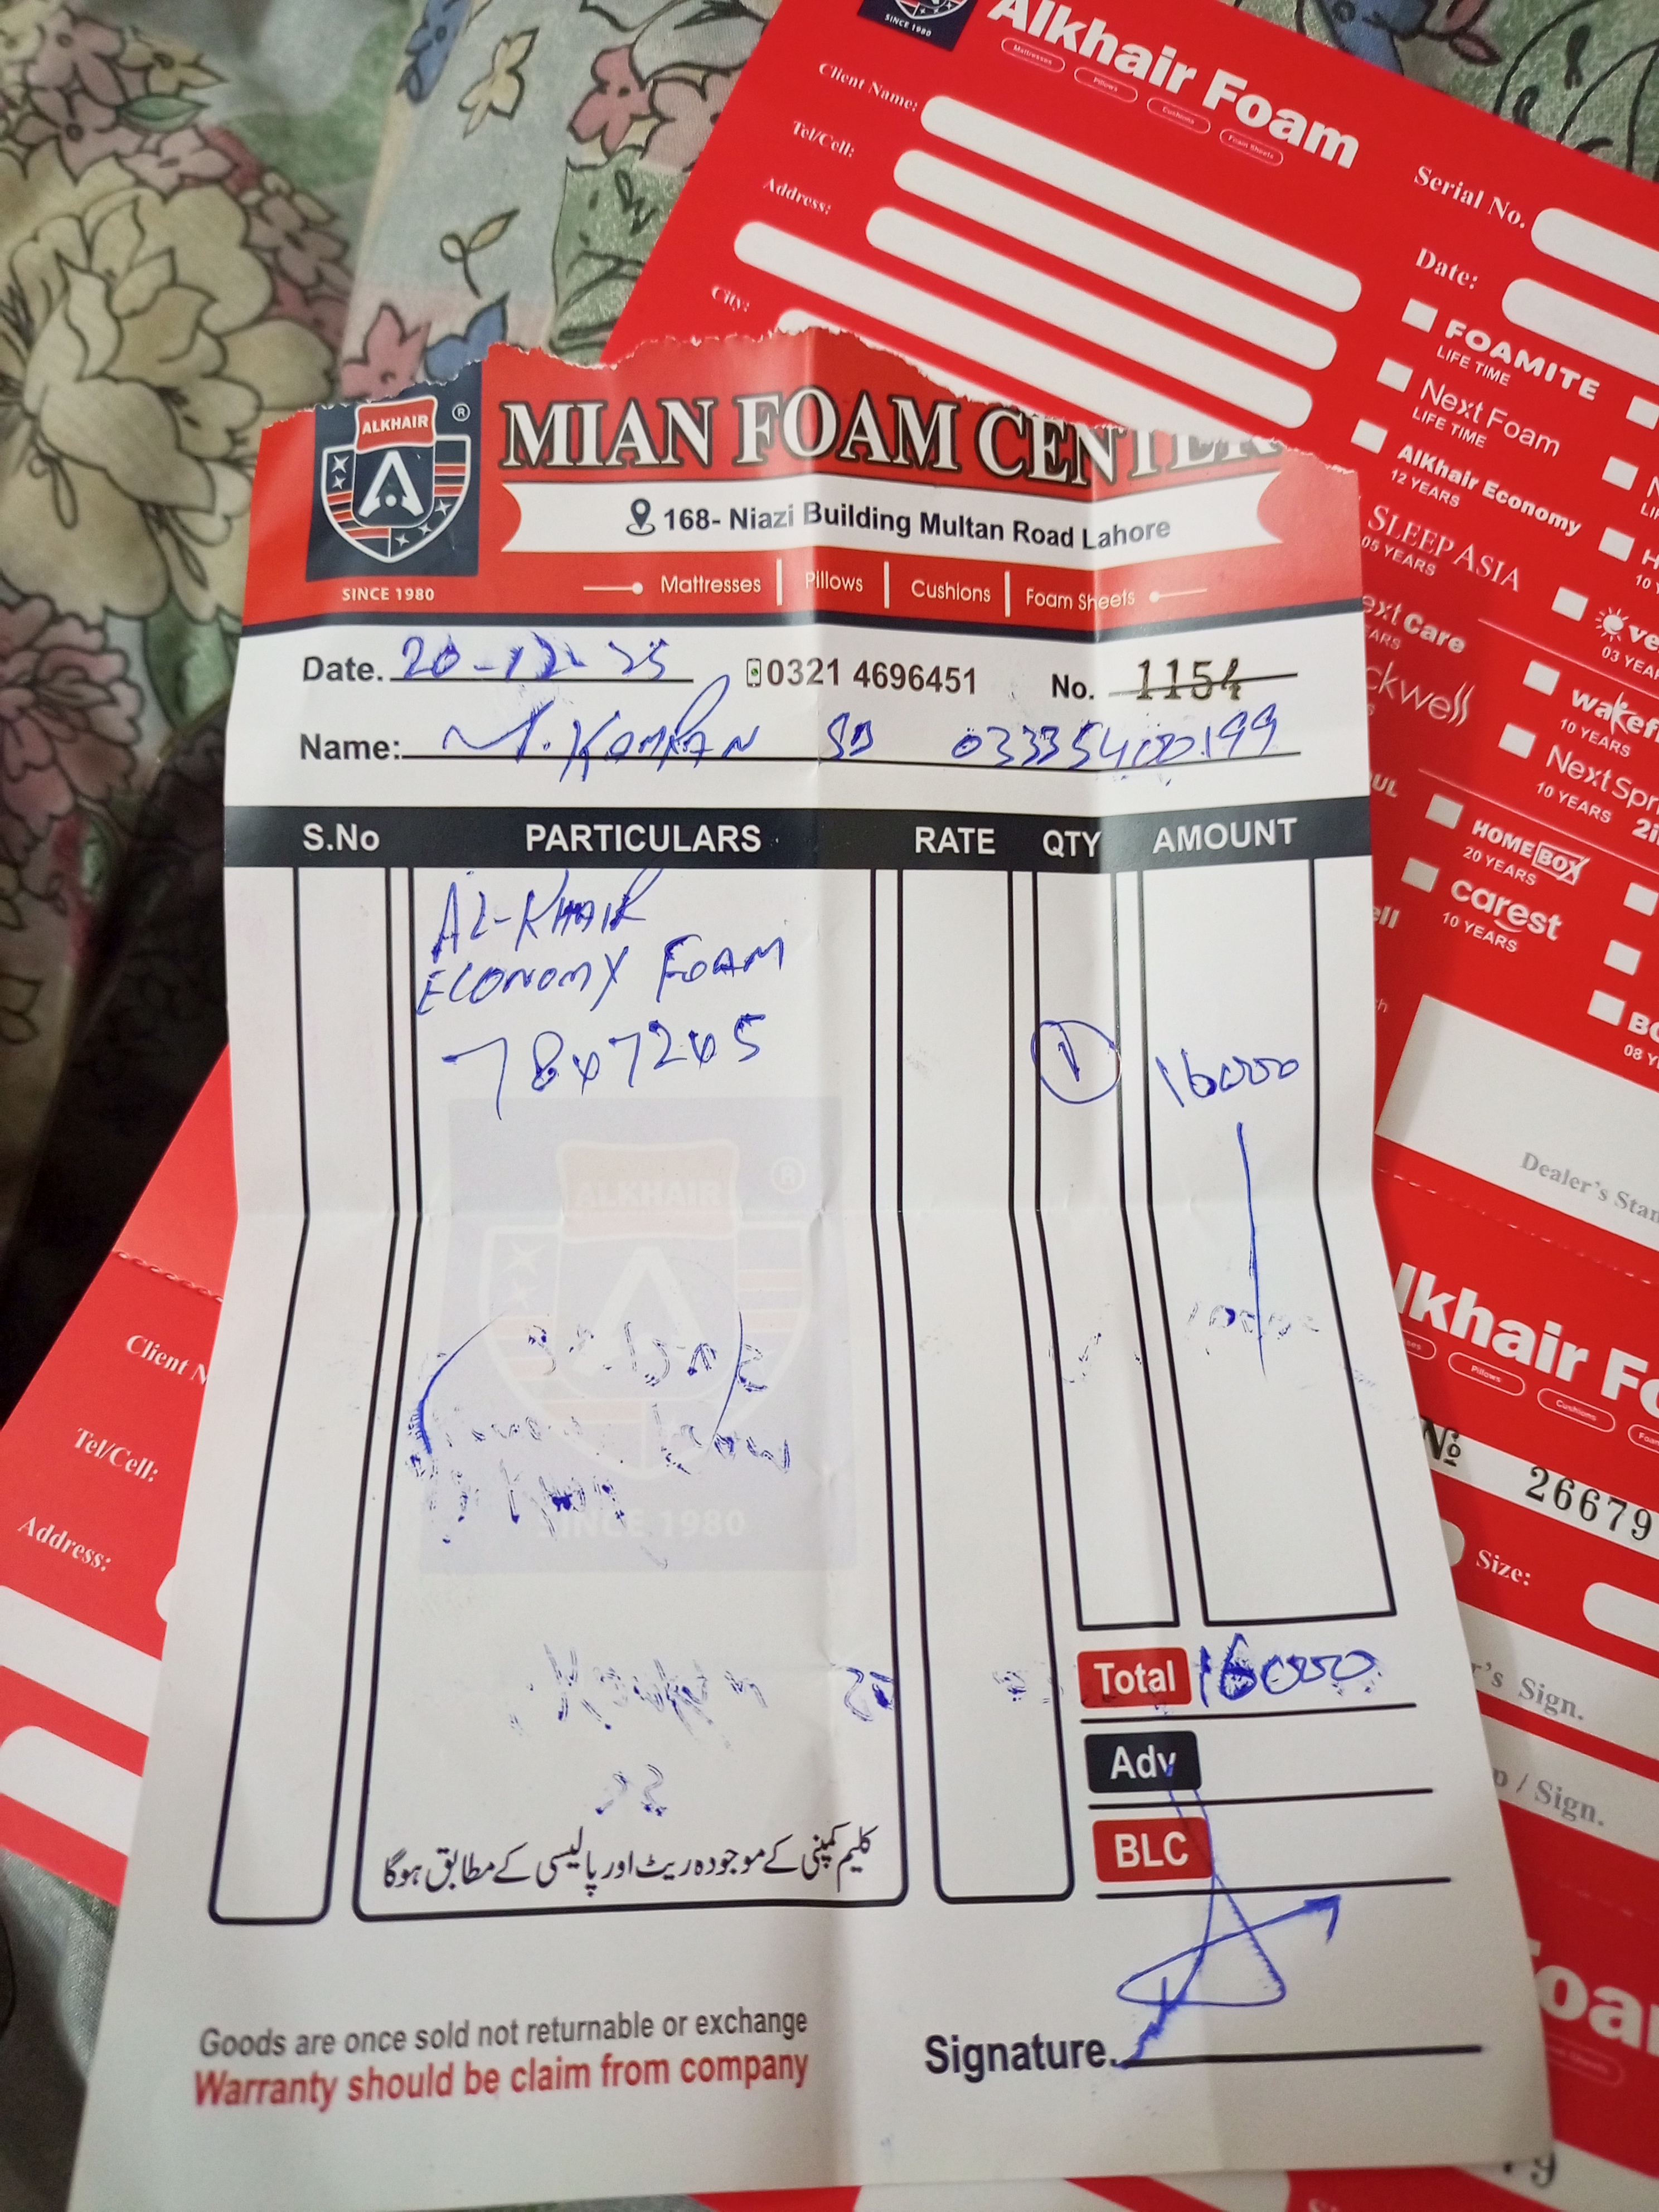 SINCE 1980
Alkhair Foam
Mattresses
Pillows
Cushions
Foam Sheets
Client Name:
Tel/Cell:
Address:
City:
Serial No.
Date:
FOAMITE
LIFE TIME
Next Foam
LIFE TIME
AlKhair Economy
12 YEARS
SLEEP ASIA
05 YEARS
ext Care
ARS
ckwell
03 YEA
wakef
10 YEARS
Next Spr
10 YEARS
HOME BOX
20 YEARS
carest
10 YEARS
Dealer's Stam
lkhair Fo
Pillows
Cushions
№ 26679
Size:
's Sign.
p / Sign.
Client N
Tel/Cell:
Address:
ALKHAIR ®
SINCE 1980
MIAN FOAM CENTER
168- Niazi Building Multan Road Lahore
Mattresses | Pillows | Cushions | Foam Sheets
Date. 20-12-25 0321 4696451 No. 1154
Name: M. KAMRAN SB
S.No PARTICULARS RATE QTY AMOUNT
AL-KHAIR
ECONOMY FOAM
78x72x5 1 16000
ALKHAIR ®
SINCE 1980
Total 16000
Adv
BLC
کلیم کمپنی کے موجودہ ریٹ اور پالیسی کے مطابق ہوگا
Goods are once sold not returnable or exchange
Warranty should be claim from company
Signature.